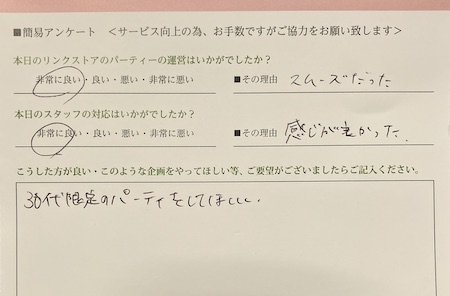 ■簡易アンケート ＜サービス向上の為、お手数ですがご協力をお願い致します＞
本日のリンクストアのパーティーの運営はいかがでしたか？
非常に良い・良い・悪い・非常に悪い ■その理由 スムーズだった
本日のスタッフの対応はいかがでしたか？
非常に良い・良い・悪い・非常に悪い ■その理由 感じが良かった.
こうした方が良い・このような企画をやってほしい等、ご要望がございましたらご記入ください。
30代限定のパーティをしてほしい.